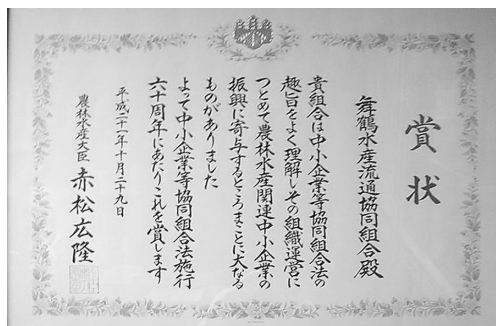 賞状
舞鶴水産流通協同組合殿
貴組合は中小企業等協同組合法の
趣旨をよく理解しその組織運営に
つとめて農林水産関連中小企業の
振興に寄与するところまことに大なる
ものがありました
よって中小企業等協同組合法施行
六十周年にあたりこれを賞します
平成二十一年十月二十九日
農林水産大臣 赤松広隆